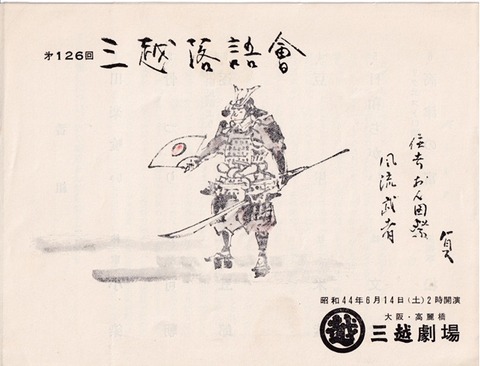 第126回 三越落語會
住吉おん田祭
風流武者
貞
昭和44年6月14日(土)2時開演
大阪・高麗橋
越 三越劇場